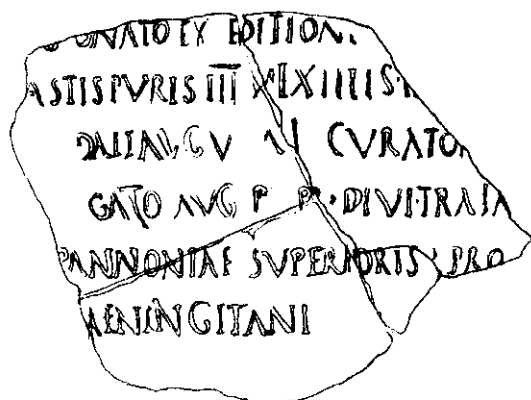 ONATO EX EDITION
ASTIS PVRIS IIII VEXILLIS
DALI AVGV CVRATO
GATO AVG P P · DIVI·TRAIA
PANNONIAE SVPERIORIS PRO
AENINGITANI